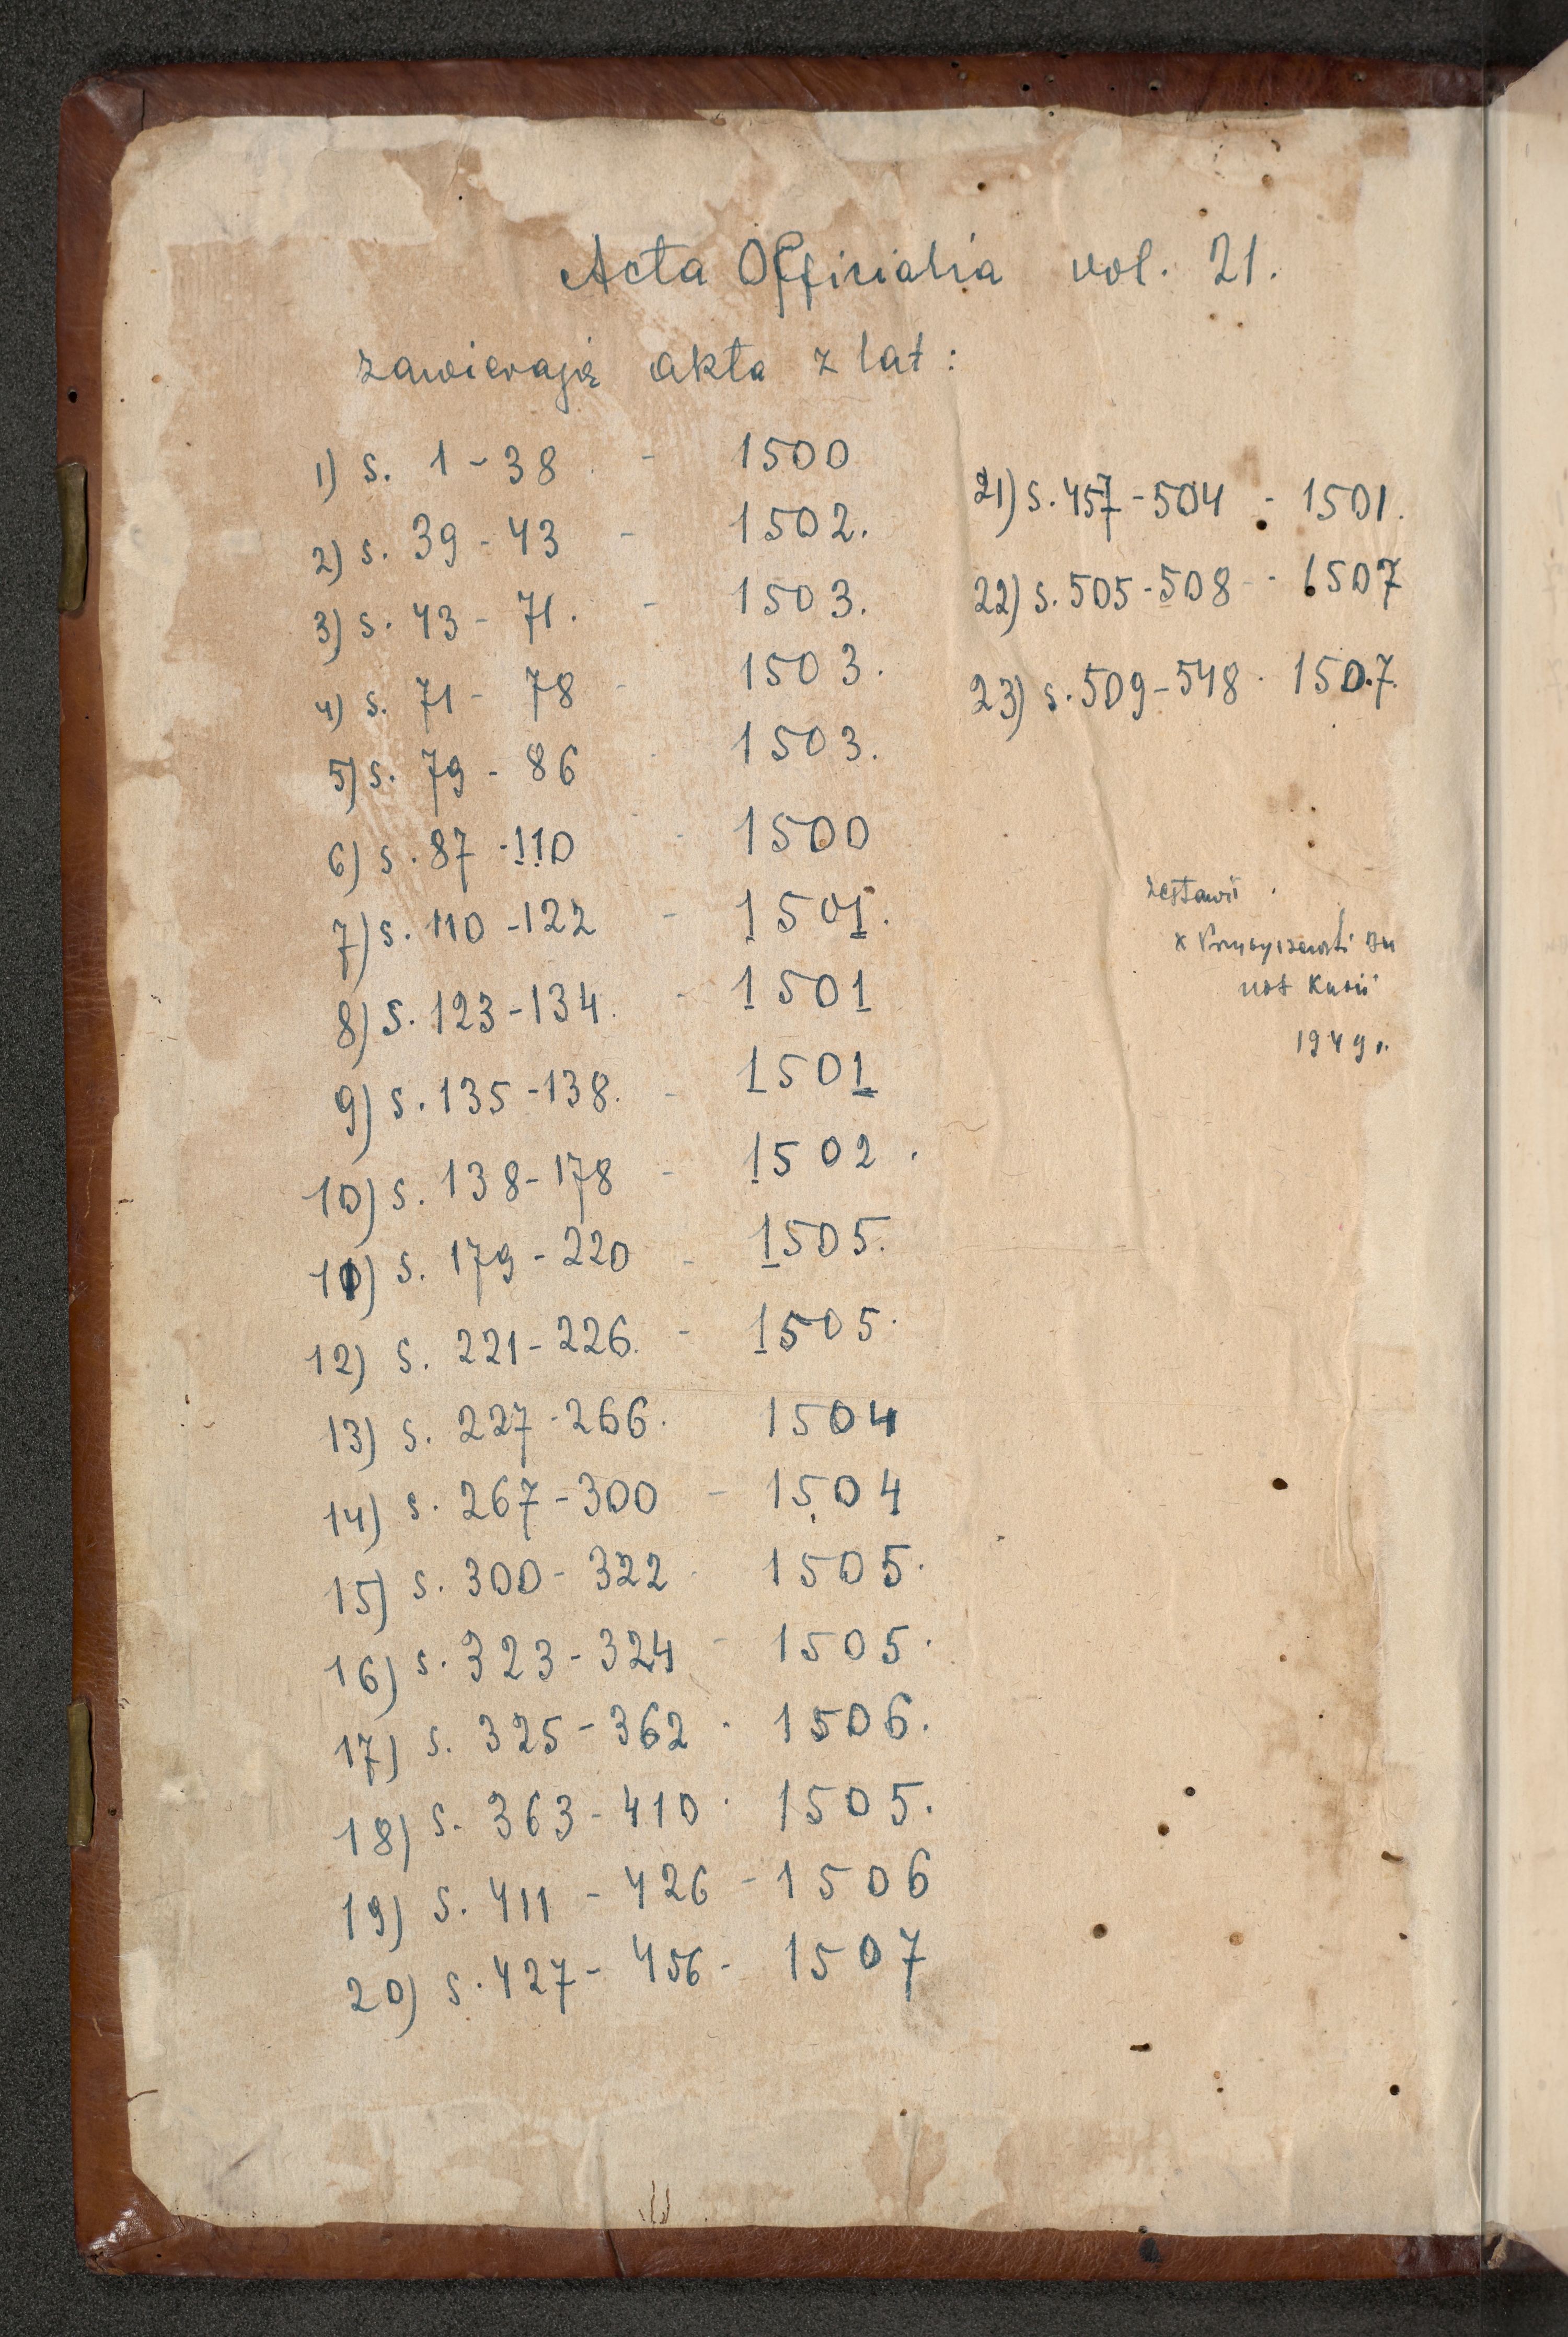 Acta Officialia vol. 21.
zawierają akta z lat:
1) s. 1-38 - 1500
2) s. 39-43 - 1502.
3) s. 43-71. - 1503.
4) s. 71-78 - 1503.
5) s. 79-86 - 1503.
6) s. 87-110 - 1500
7) s. 110-122 - 1501.
8) s. 123-134. - 1501
9) s. 135-138. - 1501
10) s. 138-178 - 1502.
11) s. 179-220 - 1505.
12) s. 221-226. - 1505.
13) s. 227-266. 1504
14) s. 267-300 - 1504
15) s. 300-322 - 1505.
16) s. 323-324 - 1505.
17) s. 325-362 - 1506.
18) s. 363-410 - 1505.
19) s. 411-426 - 1506
20) s. 427-456 - 1507
21) s. 457-504 - 1501.
22) s. 505-508 - 1507
23) s. 509-548 - 1507.
zestawił
x
not Kurii
1949 r.